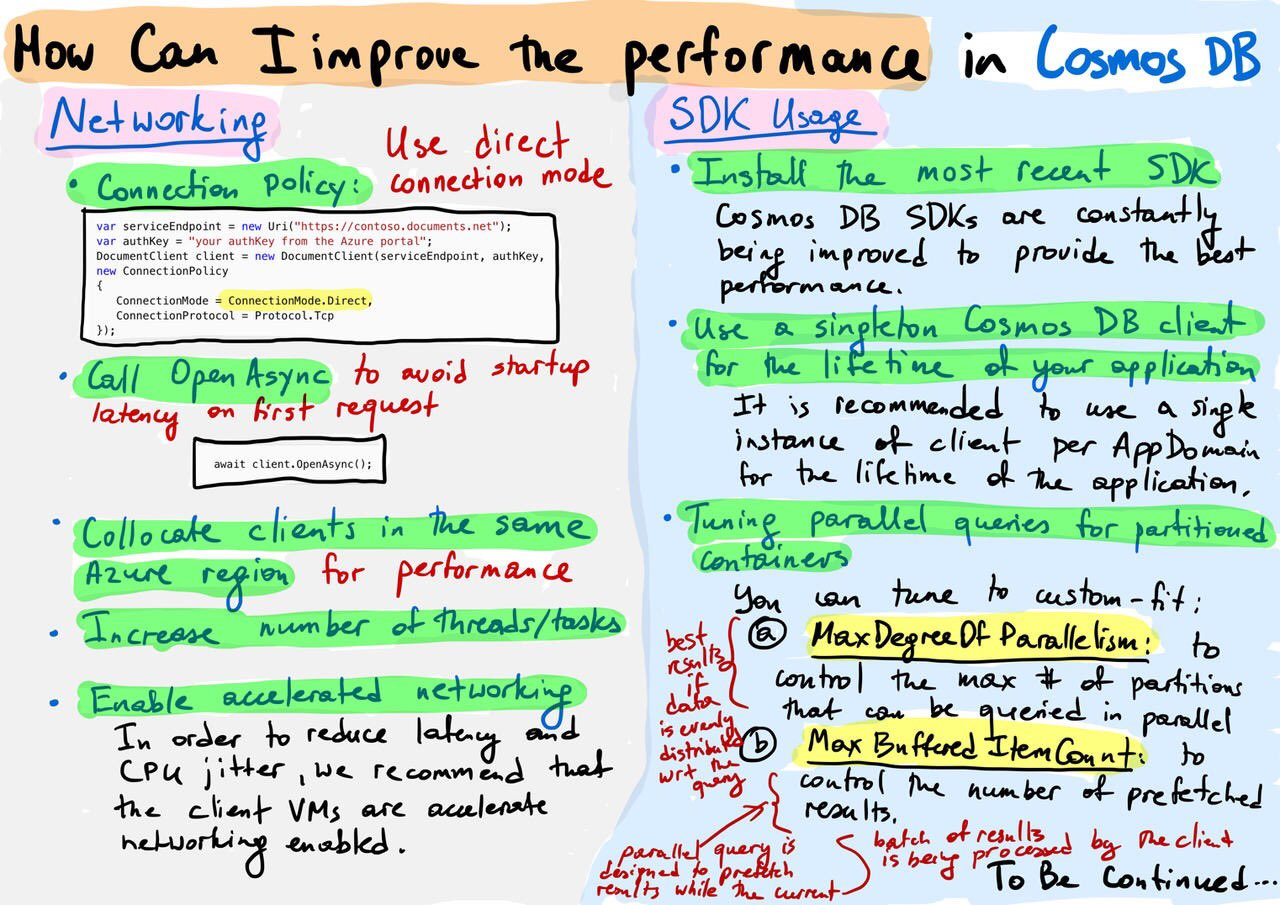 How Can I improve the performance in Cosmos DB
Networking
Use direct
connection mode
• Connection Policy:
var serviceEndpoint = new Uri("https://contoso.documents.net");
var authKey = "your authKey from the Azure portal";
DocumentClient client = new DocumentClient(serviceEndpoint, authKey,
new ConnectionPolicy
{
ConnectionMode = ConnectionMode.Direct,
ConnectionProtocol = Protocol.Tcp
});
• Call OpenAsync to avoid startup
latency on first request
await client.OpenAsync();
• Collocate clients in the same
Azure region for performance
• Increase number of threads/tasks
• Enable accelerated networking
In order to reduce latency and
CPU jitter, we recommend that
the client VMs are accelerate
networking enabled.
SDK Usage
• Install the most recent SDK
Cosmos DB SDKs are constantly
being improved to provide the best
performance.
• Use a singleton Cosmos DB client
for the lifetime of your application
It is recommended to use a single
instance of client per AppDomain
for the lifetime of the application.
• Tuning parallel queries for partitioned
containers
You can tune to custom-fit:
a MaxDegreeOfParallelism: to
control the max # of partitions
that can be queried in parallel
best
results
if
data
is evenly
distributed
wrt the
query
b MaxBufferedItemCount: to
control the number of prefetched
results.
parallel query is
designed to prefetch
results while the current
batch of results
is being processed by the client
To Be Continued...